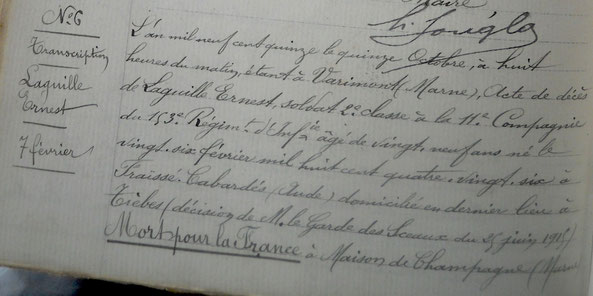 N.º 6
Transcription
Laguille
Ernest
7 février
Maire
L'an mil neuf cent quinze le quinze Octobre, à huit
heures du matin, étant à Varimont (Marne), Acte de décès
de Laguille Ernest, soldat 2.e classe à la 11.e Compagnie
du 153.e Régim.t d'Inf.ie âgé de vingt-neuf ans né le
vingt-six février mil huit cent quatre-vingt-six à
Fraissé-Cabardès (Aude) domicilié en dernier lieu à
(décision de M. le Garde des Sceaux du 25 juin 1915)
Mort pour la France à Maison de Champagne (Marne